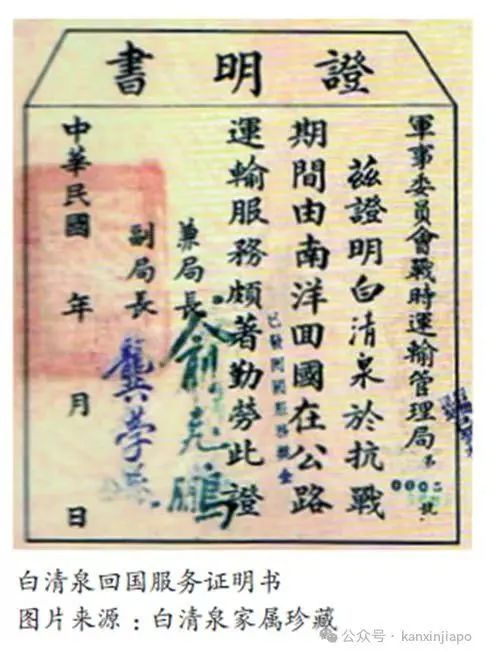 證明書
軍事委員會戰時運輸管理局
茲證明白清泉於抗戰
期間由南洋回國在公路
運輸服務頗著勤勞此證
兼局長俞飛鵬
副局長龔學遂
中華民國 年 月 日
白清泉回国服务证明书
图片来源:白清泉家属珍藏
公众号·kanxinjiapo